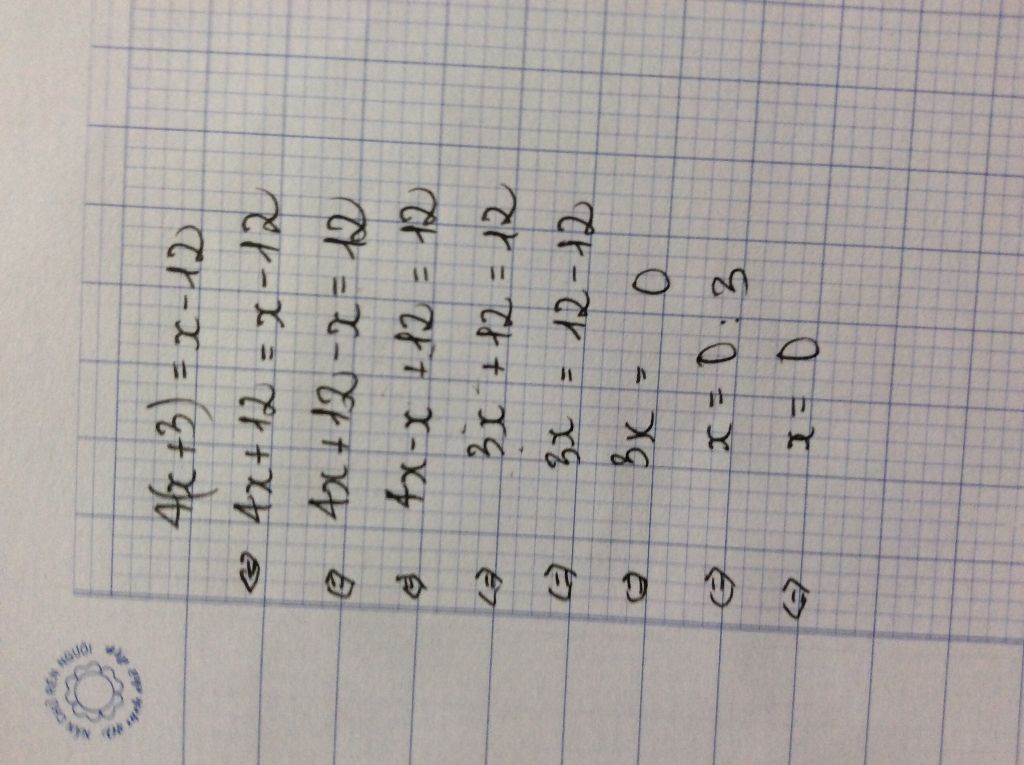 4(x+3) = x - 12
⇔ 4x + 12 = x - 12
⇔ 4x + 12 - x = 12
⇔ 4x - x + 12 = 12
⇔ 3x + 12 = 12
⇔ 3x = 12 - 12
⇔ 3x = 0
⇔ x = 0 : 3
⇔ x = 0
NÉT CHỮ NẾT NGƯỜI